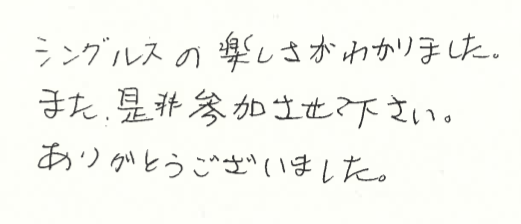 シングルスの楽しさがわかりました。
また、是非参加させて下さい。
ありがとうございました。